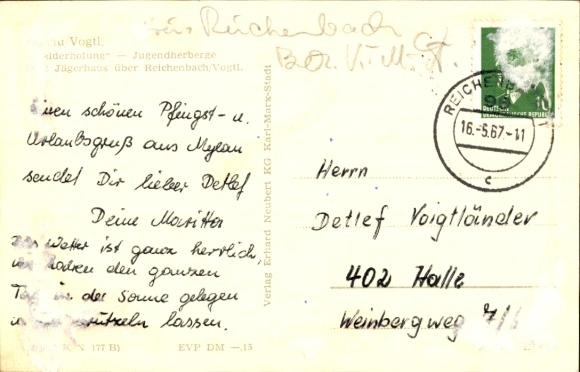 Reichenbach
Bez. K. M. St.
Vogtl.
" — Jugendherberge
Jägerhaus über Reichenbach/Vogtl.
Einen schönen Pfingst- u.
Urlaubsgruß aus Mylau
sendet Dir lieber Detlef
Deine Maritta
Wetter ist ganz herrlich,
den ganzen
Tag in der Sonne gelegen
lassen.
177 B)
EVP DM —,15
Verlag Erhard Neubert KG Karl-Marx-Stadt
REICHENBACH
16.-5.67-11
c
10
DEUTSCHE
DEMOKRATISCHE REPUBLIK
Herrn
Detlef Voigtländer
402 Halle
Weinbergweg